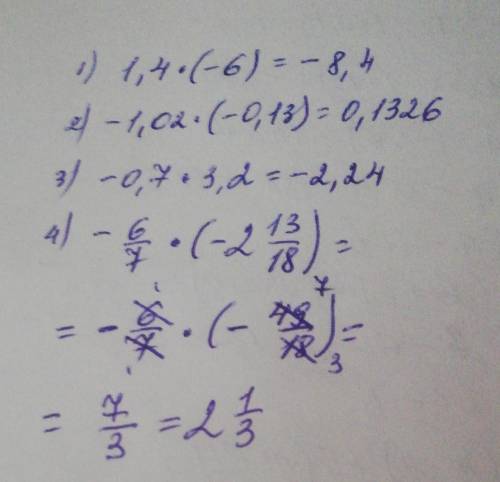 1) 1,4 · (-6) = -8,4
2) -1,02 · (-0,13) = 0,1326
3) -0,7 · 3,2 = -2,24
4) - 6/7 · (-2 13/18) =
= - 6/7 · (- 49/18) = 7 3
= 7/3 = 2 1/3